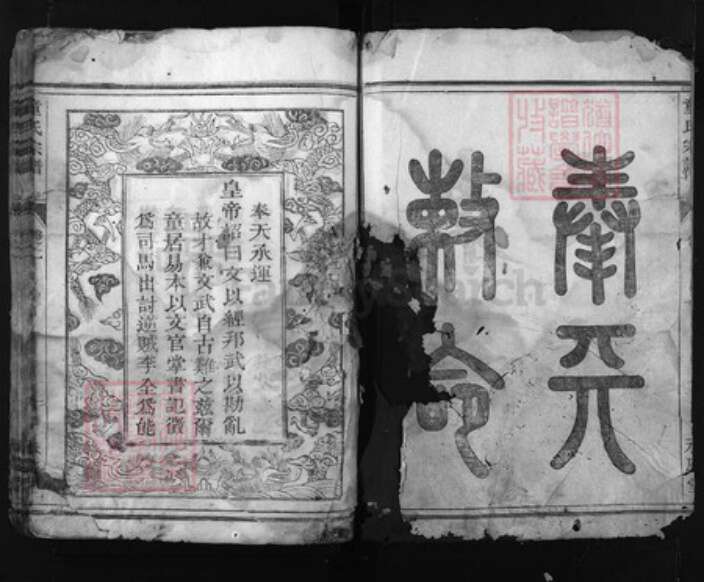 奉天
敕命
奉天承運
皇帝詔曰文以經邦武以勘亂
故才兼文武自古難之茲爾
童居易本以文官掌書記徵
爲司馬出討逆賊李全爲能
童氏宗譜